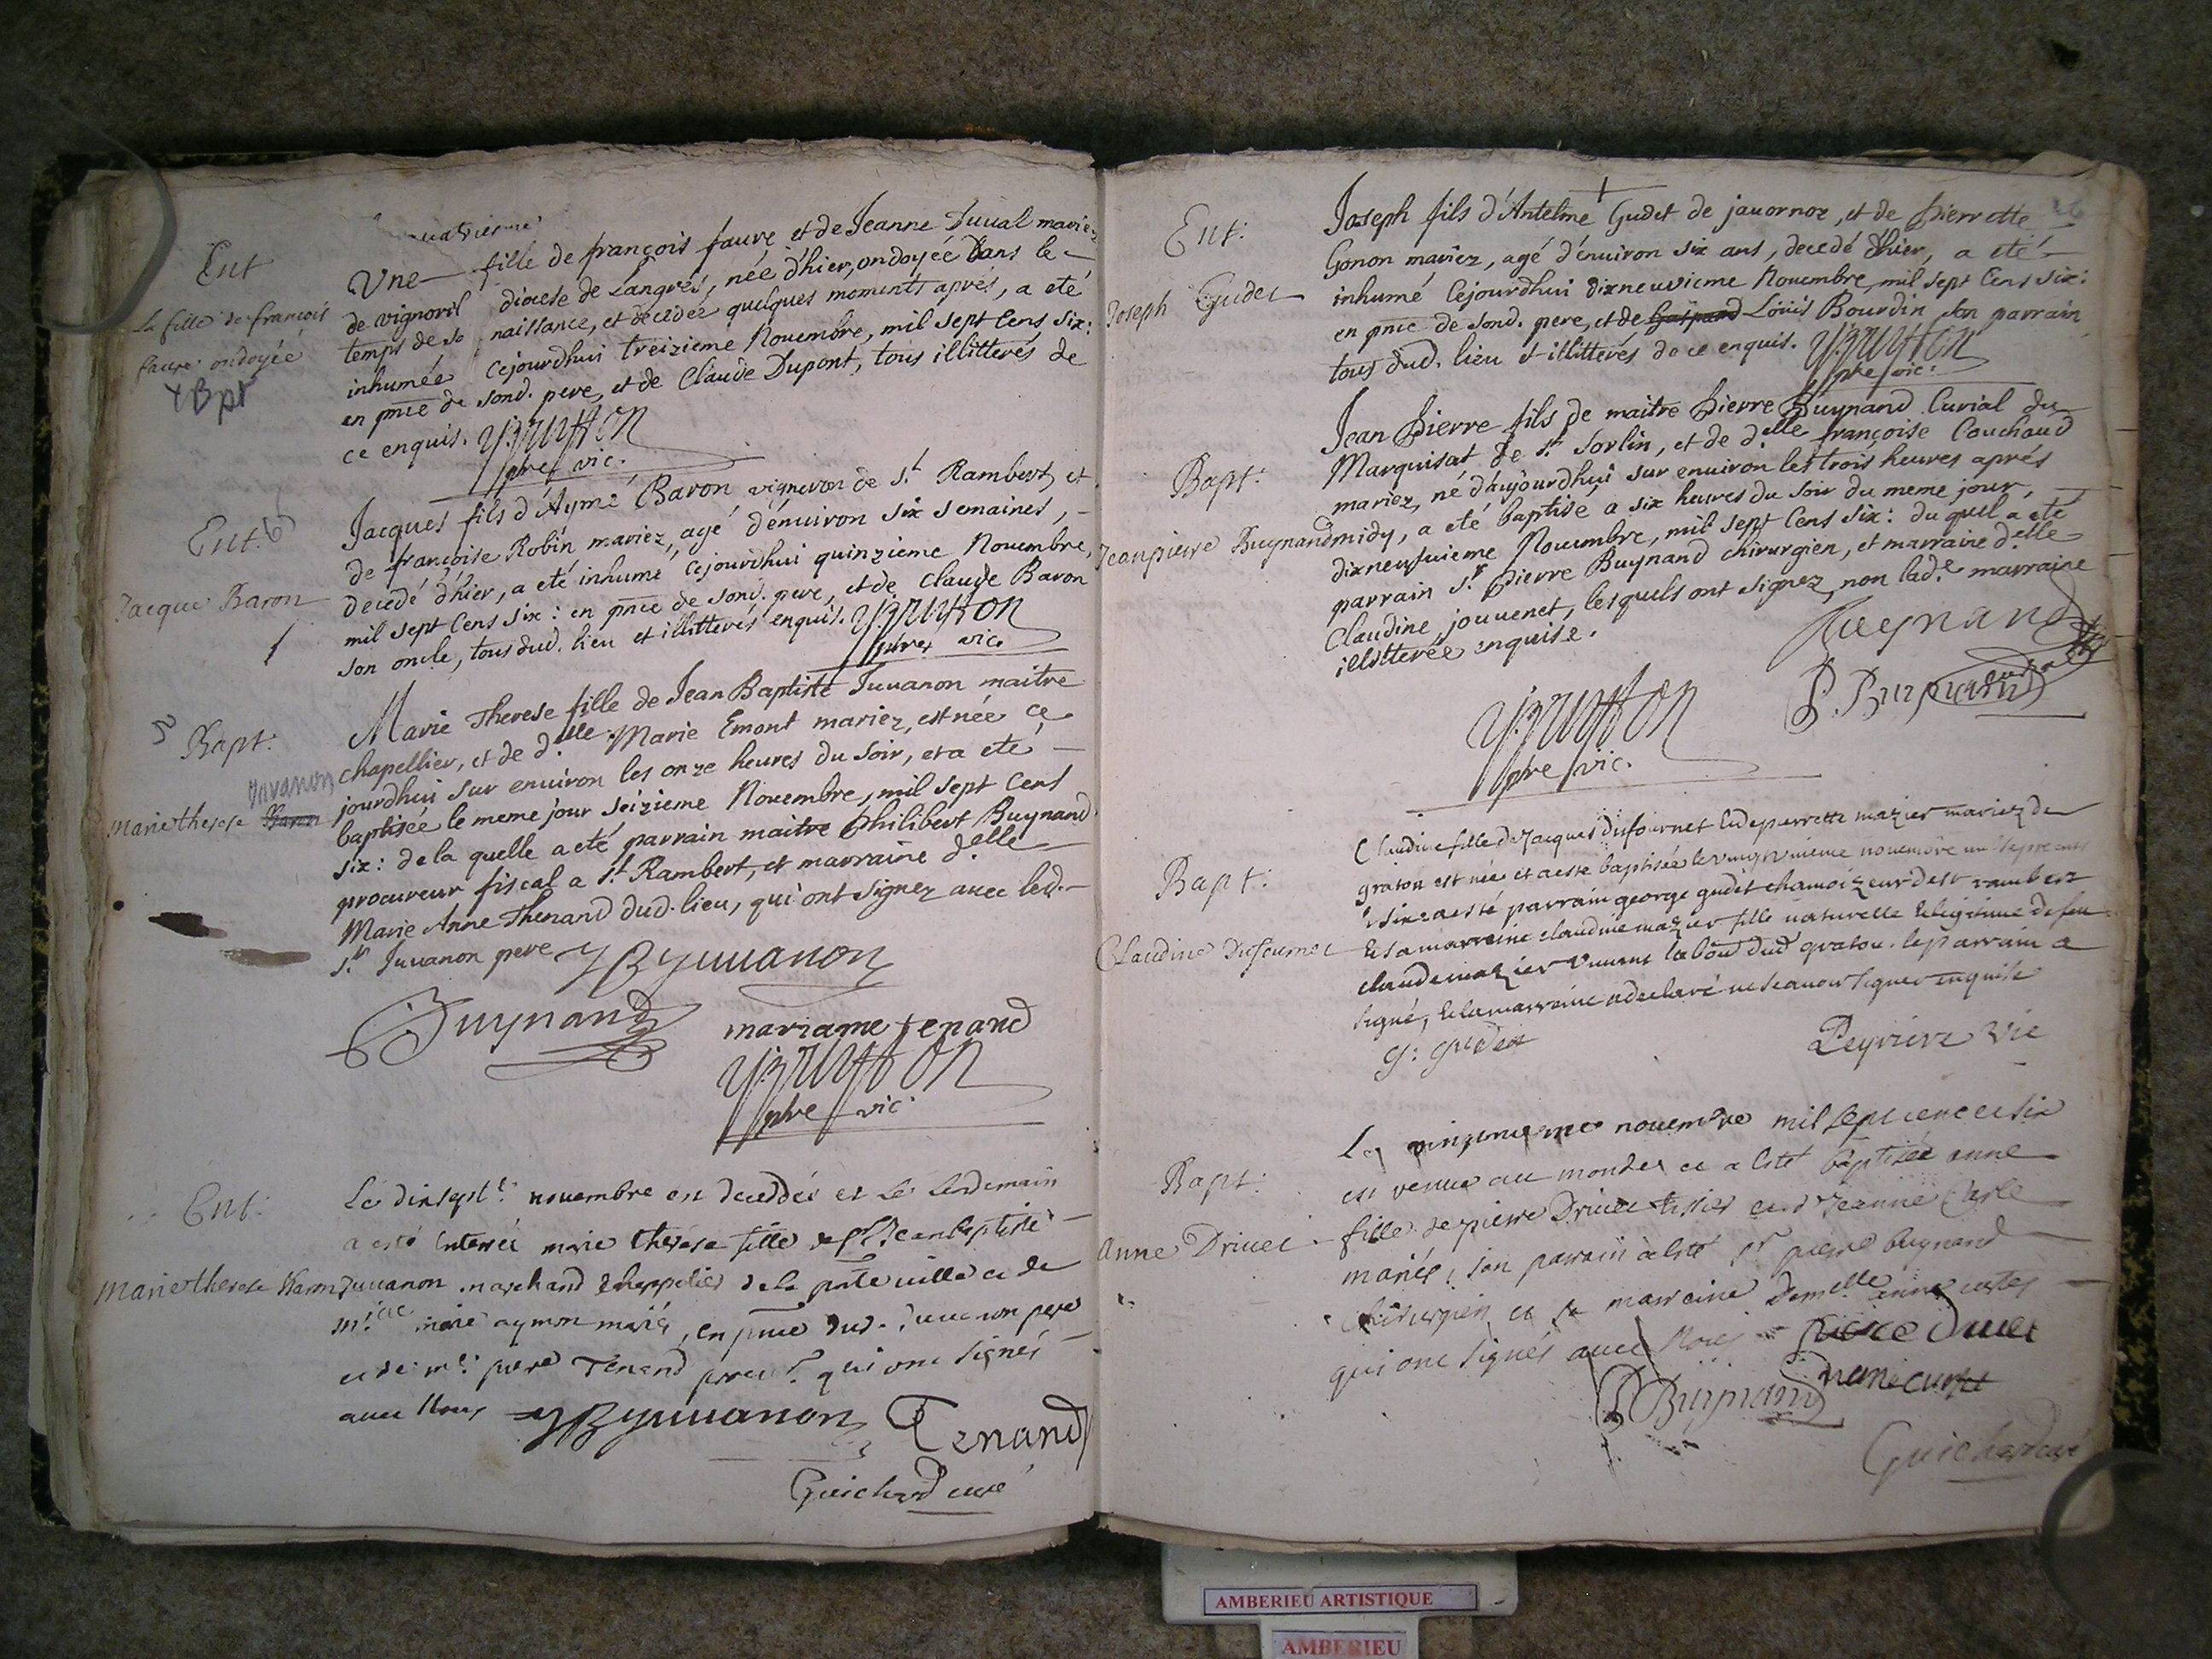 Ent
La fille de francois
faure ondoyée
Bpt
Une fille de françois faure et de Jeanne Duual mariez
de vignoril diocese de Langres, née d'hier, ondoyée dans le
temps de sa naissance, et decedée quelques moments aprés, a eté
inhumée cejourdhui treizieme Nouembre, mil sept Cens six:
en pnce de sond. pere, et de Claude Dupont, tous illitterés de
ce enquis. YBrutton
pbre vic.
Ent.
Jacque Baron
Jacques fils d'Aymé Baron vigneron de St. Rambert, et
de françoise Robin mariez, agé d'enuiron six semaines,
decedé d'hier, a eté inhumé cejourdhui quinzieme Nouembre,
mil sept Cens six: en pnce de sond. pere, et de Claude Baron
son oncle, tous dud. lieu et illitterés enquis. YBrutton
pbre vic.
Bapt.
Juvanon
Marie therese Baron
Marie Therese fille de Jean Baptiste Juuanon maitre
chapellier, et de d.elle Marie Emont mariez, est née ce
jourdhui sur enuiron les onze heures du soir, et a eté
baptisée le meme jour seizieme Nouembre, mil sept Cens
six: de la quelle a eté parrain maitre Philibert Buynand
procureur fiscal a St. Rambert, et marraine d.elle
Marie Anne Thenand dud. lieu, qui ont signez auec led.
Sr. Juuanon pere JBJuuanon
Buynand mariame tenand
YBrutton
pbre vic.
Ent.
Marie therese Baron
Le dixsept.e nouembre est decedée et le lendemain
a esté enterrée marie therese fille de Sr. Jean baptiste
Juuanon marchand chappelier de la pnte uille et de
marie aymon mariés, en pnce dud. Juuanon pere
et de me. pierre Tenand procur. qui ont signés
auec Nous JBJuuanon Tenand
Guichard curé
Ent.
Joseph Gudet
Joseph fils d'Antelme Gudet de jauornoz, et de Pierrette
Gonon mariez, agé d'enuiron six ans, decedé d'hier, a eté
inhumé cejourdhui dixneuvieme Nouembre, mil sept Cens six:
en pnce de sond. pere, et de Gaspard Loüis Bourdin son parrain
tous dud. lieu et illitterés de ce enquis. YBrutton
pbre vic.
Bapt.
Jeanpierre Buynand
Jean Pierre fils de maitre Pierre Buynand Curial du
Marquisat de St. Sorlin, et de d.elle françoise Couchoud
mariez, né d'aujourdhui sur enuiron les trois heures aprés
midy, a eté baptisé a six heures du soir du meme jour,
dixneufuieme Nouembre, mil sept Cens six: du quel a eté
parrain Sr. Pierre Buynand chirurgien, et marraine d.elle
Claudine jouuenet, lesquels ont signez, non lad.e marraine
illitterée enquise.
Buynand
P. Buynand
YBrutton
pbre vic.
Bapt.
Claudine Dufournet
Claudine fille de Jacques dufournet et de pierrette mazier mariez de
graton est née et a esté baptisée le nouembre mil sept cents
six a esté parrain george gudet chamoizeur de st rambert
et sa marraine claudine mazier fille naturelle et legitime de feu
claude mazier dud graton. le parrain a
signé, et la marraine a declaré ne scauoir signer enquise
G: Gudet Peyrieu vic
Bapt.
Anne Driuet
Le nouembre mil sept cent et six
est venue au monde et a esté baptisée anne
fille de pierre Driuet tissier et de Jeanne Carle
mariés, son parrain a esté Sr. pierre buynand
chirurgien et sa marraine dem.elle anne
qui ont signés auec Nous
P Buynand
Guichard curé
AMBERIEU ARTISTIQUE
AMBERIEU